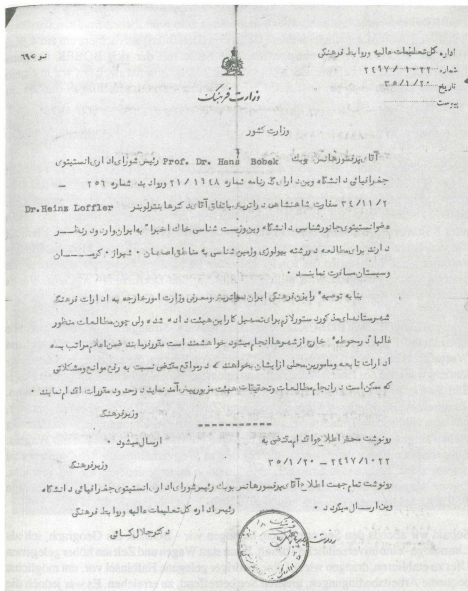 اداره کل تعلیمات عالیه و روابط فرهنگی
شماره ۲۴۹۷/۱۰۲۲
تاریخ ۳۵/۱/۲۰
پیوست
وزارت فرهنگ
وزارت کشور
آقای پرفسور هانس بوبک Prof. Dr. Hans Bobek رئیس شورای اداری انستیتوی
جغرافیائی دانشگاه وین دارای گذرنامه شماره ۲۱/۱۹۴۸ و روادید شماره ۲۵۶ –
۳۴/۱۱/۲ سفارت شاهنشاهی در اتریش باتفاق آقای دکتر هاینز لوفلر Dr. Heinz Loffler
عضو انستیتوی جانورشناسی دانشگاه وین و زیست شناسی خاک اخیرا به ایران وارد و در نظر
دارند برای مطالعه در رشته بیولوژی و زمین شناسی به مناطق اصفهان ، شیراز ، کرمان
و سیستان مسافرت نمایند .
بنا به توصیه رایزن فرهنگی ایران در اتریش و معرفی وزارت امور خارجه به ادارات فرهنگ
شهرستانهای مذکور دستور لازم برای تسهیل کار این هیئت داده شده ولی چون مطالعات منظور
غالبا در محوطه خارج از شهرها انجام میشود خواهشمند است مقرر فرمایند ضمن اعلام مراتب به
ادارات تابعه و مامورین محلی از ایشان بخواهند که در مواقع مقتضی نسبت به رفع موانع و مشکلاتی
که ممکن است در انجام مطالعات و تحقیقات هیئت مزبور پیش آمد نماید در حدود مقررات اقدام نمایند .
وزیر فرهنگ
===========
رونوشت محض اطلاع و اقدام مقتضی به ارسال میشود .
۲۴۹۷/۱۰۲۲ – ۳۵/۱/۲۰ وزیر فرهنگ
رونوشت تمام جهت اطلاع آقای پرفسور هانس بوبک رئیس شورای اداری انستیتوی جغرافیائی دانشگاه
وین ارسال میگردد . رئیس اداره کل تعلیمات عالیه و روابط فرهنگی
دکتر جلال